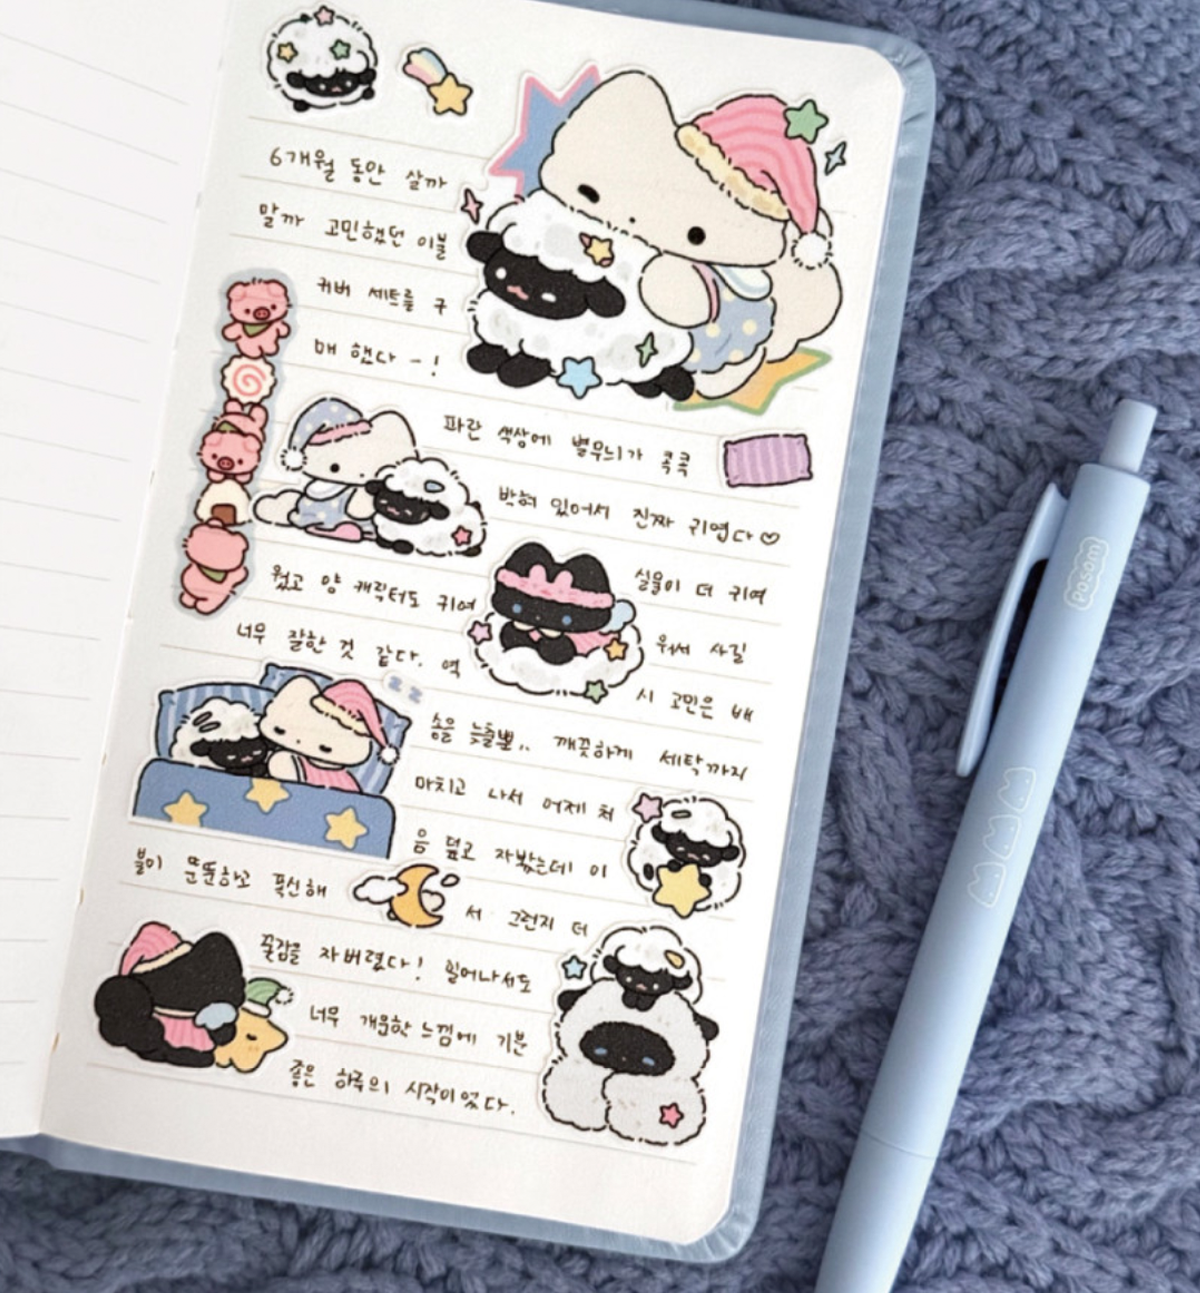 6개월 동안 살까
말까 고민했던 이불
커버 세트를 구
매 했다-!
파란 색상에 별무늬가 콕콕
박혀 있어서 진짜 귀엽다♡
실물이 더 귀여
웠고 양 캐릭터도 귀여
워서 사길
너무 잘한 것 같다. 역
시 고민은 배
송을 늦출뿐.. 깨끗하게 세탁까지
마치고 나서 어제 처
음 덮고 자봤는데 이
불이 뚠뚠하고 폭신해
서 그런지 더
꿀잠을 자버렸다! 일어나서도
너무 개운한 느낌에 기분
좋은 하루의 시작이었다.
zz
Posom